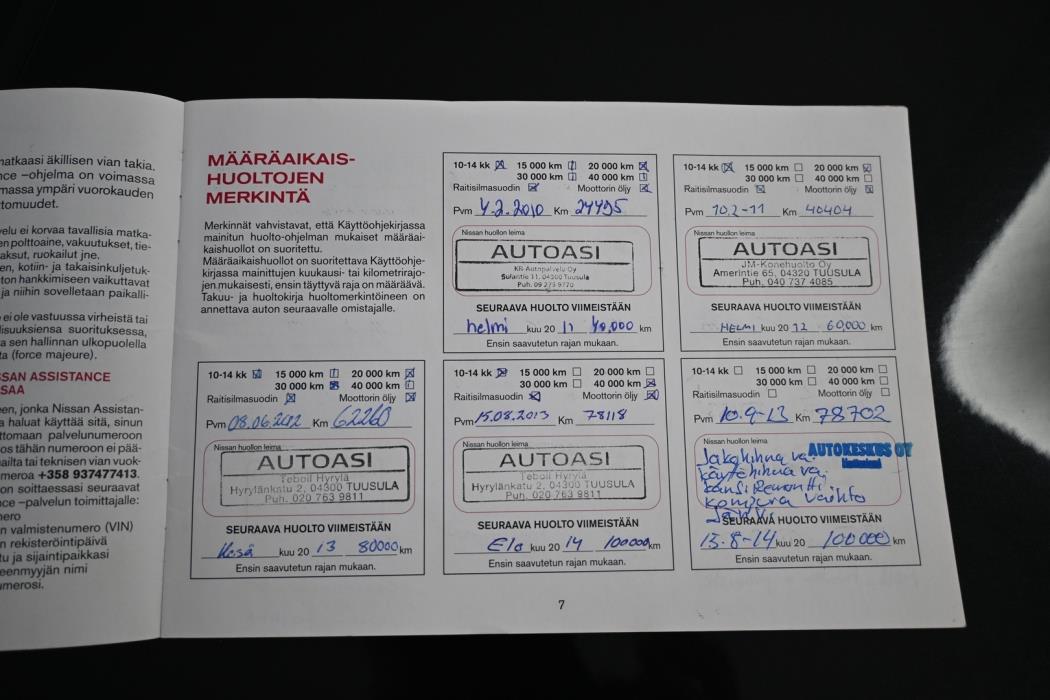 natkaasi äkillisen vian takia,
nce –ohjelma on voimassa
massa ympäri vuorokauden
tomuudet.
elu ei korvaa tavallisia matka-
en polttoaine, vakuutukset, tie-
aksut, ruokailut jne.
en, kotiin- ja takaisinkuljetuk-
ton hankkimiseen vaikuttavat
ja niihin sovelletaan paikalli-
ei ole vastuussa virheistä tai
lisuuksiensa suorituksessa,
a sen hallinnan ulkopuolella
ta (force majeure).
SSAN ASSISTANCE
SAA
een, jonka Nissan Assistan-
a haluat käyttää sitä, sinun
ttomaan palvelunumeroon
os tähän numeroon ei pää-
mailta tai teknisen vian vuok-
meroa +358 937477413.
on soittaessasi seuraavat
nce –palvelun toimittajalle:
nero
n valmistenumero (VIN)
n rekisteröintipäivä
tu ja sijaintipaikkasi
eenmyyjän nimi
umerosi.
MÄÄRÄAIKAIS-
HUOLTOJEN
MERKINTÄ
Merkinnät vahvistavat, että Käyttöohjekirjassa
mainitun huolto-ohjelman mukaiset määräai-
kaishuollot on suoritettu.
Määräaikaishuollot on suoritettava Käyttöohje-
kirjassa mainittujen kuukausi- tai kilometrirajo-
jen mukaisesti, ensin täyttyvä raja on määräävä.
Takuu- ja huoltokirja huoltomerkintöineen on
annettava auton seuraavalle omistajalle.
10-14 kk 15 000 km 20 000 km
30 000 km 40 000 km
Raitisilmasuodin Moottorin öljy
Pvm 4.2.2010 Km 24495
Nissan huollon leima
AUTOASI
KR-Autopalvelu Oy
Sulantie 11, 04300 Tuusula
Puh. 09 273 9770
SEURAAVA HUOLTO VIIMEISTÄÄN
helmi kuu 20 11 40,000 km
Ensin saavutetun rajan mukaan.
10-14 kk 15 000 km 20 000 km
30 000 km 40 000 km
Raitisilmasuodin Moottorin öljy
Pvm 10.2-11 Km 40404
Nissan huollon leima
AUTOASI
JM-Konehuolto Oy
Amerintie 65, 04320 TUUSULA
Puh. 040 737 4085
SEURAAVA HUOLTO VIIMEISTÄÄN
HELMI kuu 20 12 60,000 km
Ensin saavutetun rajan mukaan.
10-14 kk 15 000 km 20 000 km
30 000 km 40 000 km
Raitisilmasuodin Moottorin öljy
Pvm 08.06.2012 Km 62260
Nissan huollon leima
AUTOASI
Teboil Hyrylä
Hyrylänkatu 2, 04300 TUUSULA
Puh. 020 763 9811
SEURAAVA HUOLTO VIIMEISTÄÄN
Kesä kuu 20 13 80000 km
Ensin saavutetun rajan mukaan.
10-14 kk 15 000 km 20 000 km
30 000 km 40 000 km
Raitisilmasuodin Moottorin öljy
Pvm 15.08.2013 Km 78118
Nissan huollon leima
AUTOASI
Teboil Hyrylä
Hyrylänkatu 2, 04300 TUUSULA
Puh. 020 763 9811
SEURAAVA HUOLTO VIIMEISTÄÄN
Elo kuu 20 14 100000 km
Ensin saavutetun rajan mukaan.
10-14 kk 15 000 km 20 000 km
30 000 km 40 000 km
Raitisilmasuodin Moottorin öljy
Pvm 10.9-13 Km 78702
Nissan huollon leima
AUTOKESKUS OY
Jakohihna va.
käyttöhihna va.
kansi Remontti
Kompura vaihto
SEURAAVA HUOLTO VIIMEISTÄÄN
15-8-14 kuu 20 100000 km
Ensin saavutetun rajan mukaan.
7